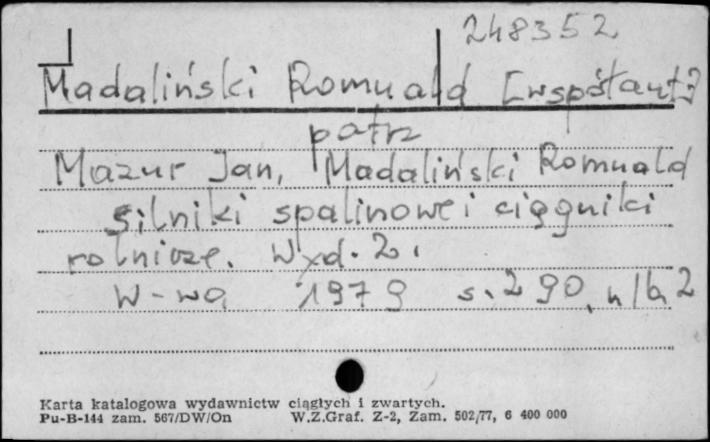 248352
Madaliński Romuald [współaut.]
patrz
Mazur Jan, Madaliński Romuald
Silniki spalinowe i ciągniki
rolnicze. Wyd. 2.
W-wa 1979 s. 290, nlb 2
Karta katalogowa wydawnictw ciągłych i zwartych.
Pu-B-144 zam. 567/DW/On W.Z.Graf. Z-2, Zam. 502/77, 6 400 000